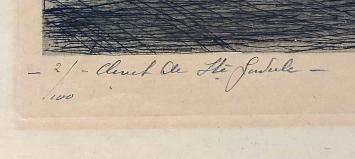 - 2/ - Chevet de Ste Gudule -
/100